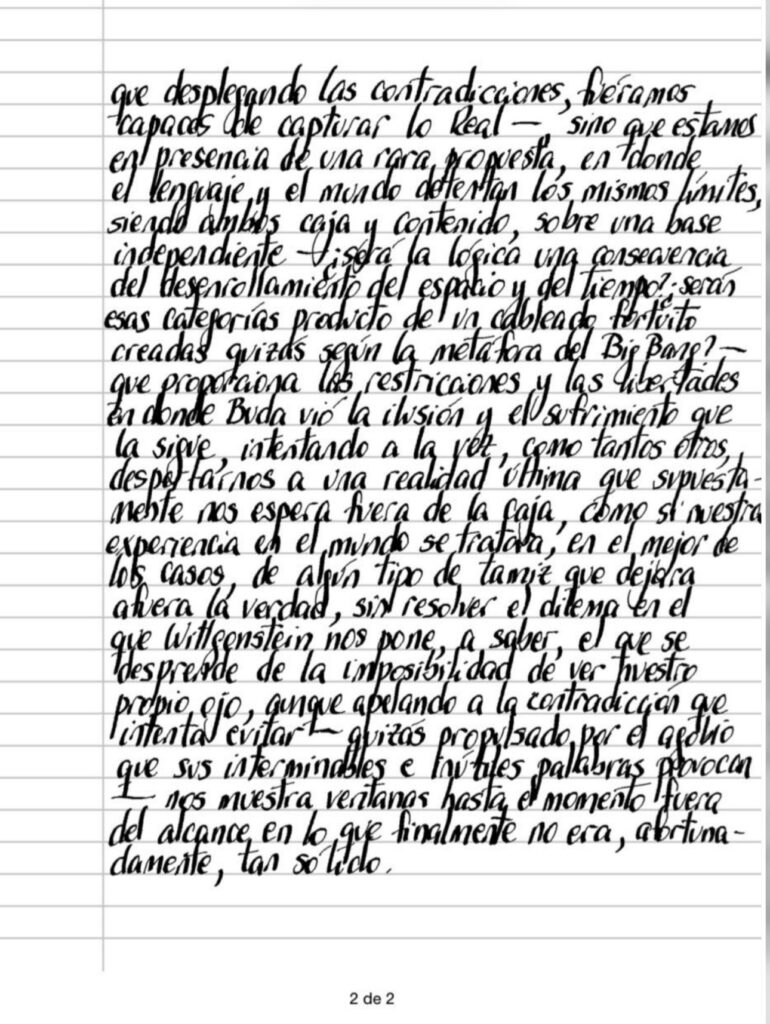 que desplegando las contradicciones, fuéramos
capaces de capturar lo Real —, sino que estamos
en presencia de una rara propuesta, en donde
el lenguaje y el mundo detentan los mismos límites,
siendo ambos caja y contenido, sobre una base
independiente — ¿será la lógica una consecuencia
del desenrollamiento del espacio y del tiempo? ¿serán
esas categorías producto de un cableado fortuito
creadas quizás según la metáfora del Big Bang? —
que proporciona las restricciones y las libertades
en donde Buda vió la ilusión y el sufrimiento que
la sigue, intentando a la vez, como tantos otros,
despertarnos a una realidad última que supuesta-
mente nos espera fuera de la caja, como si nuestra
experiencia en el mundo se tratara, en el mejor de
los casos, de algún tipo de tamiz que dejara
afuera la verdad, sin resolver el dilema en el
que Wittgenstein nos pone, a saber, el que se
desprende de la imposibilidad de ver nuestro
propio ojo, aunque apelando a la contradicción que
intenta evitar — quizás propulsado por el agobio
que sus interminables e inútiles palabras provocan
— nos muestra ventanas hasta el momento fuera
del alcance en lo que finalmente no era, afortuna-
damente, tan sólido.
2 de 2